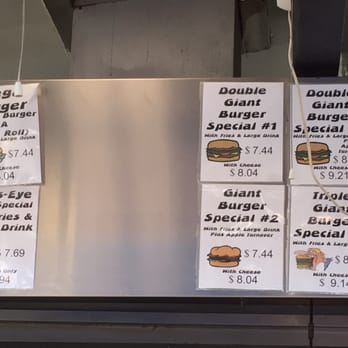 Burger
A
Roll)
Large Drink
$7.44
.04
s-Eye
Special
Fries &
Drink
$ 7.69
Only
Double
Giant
Burger
Special #1
With Fries & Large Drink
$ 7.44
With Cheese
$ 8.04
Giant
Burger
Special #2
With Fries & Large Drink
Plus Apple Turnover
$ 7.44
With Cheese
$ 8.04
Double
Giant
Burger
Special
With Fries & Large
$ 8
With Cheese
$ 9.21
Triple
Giant
Burger
Special
With Fries & Large
$ 8
With Cheese
$ 9.14